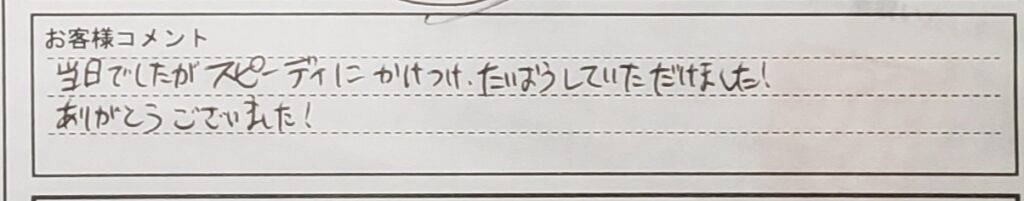 お客様コメント
当日でしたがスピーディにかけつけ、たいおうしていただけました!
ありがとうございました!